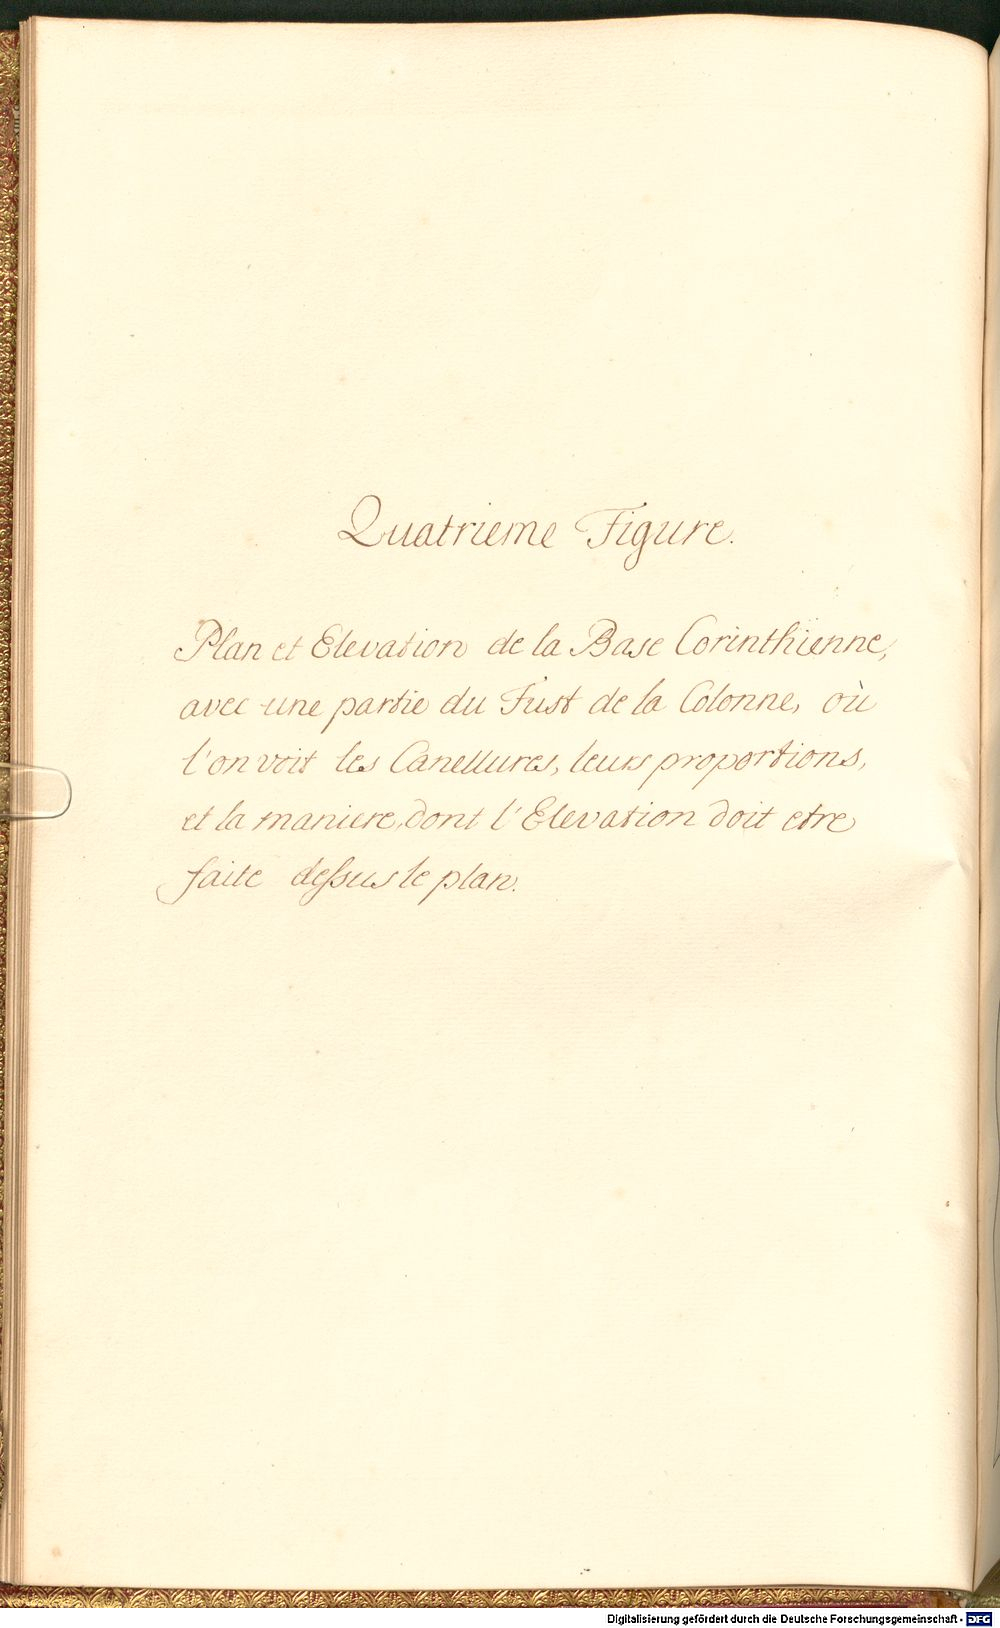 Quatrieme Figure.
Plan et Elevation de la Base Corinthïenne,
avec une partie du Fust de la Colonne, où
l'on voit les Canellures, leurs proportions,
et la maniere, dont l'Elevation doit etre
faite dessus le plan.
Digitalisierung gefördert durch die Deutsche Forschungsgemeinschaft - DFG